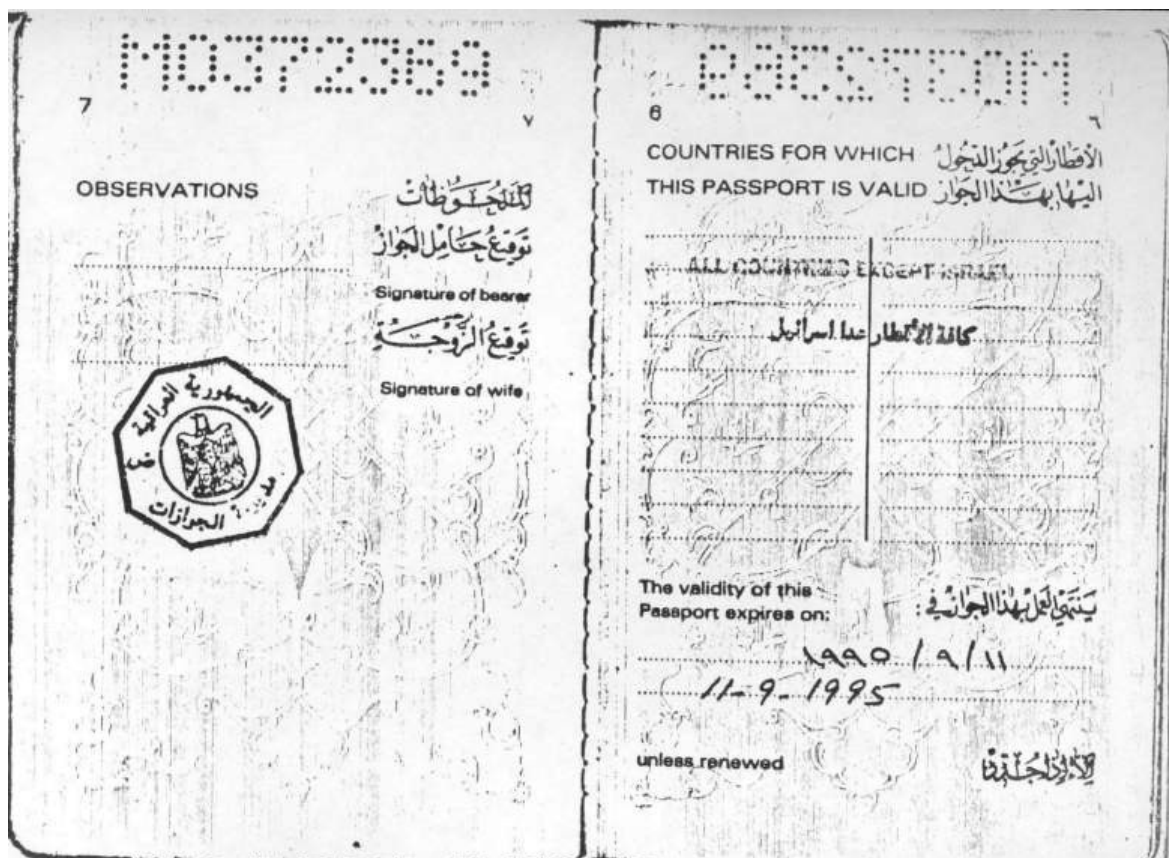 M0372369
7
٧
OBSERVATIONS
الملحوظات
توقيع حامل الجواز
Signature of bearer
توقيع الزوجة
Signature of wife
الجمهورية العراقية
مديرية الجوازات
M0372369
6
٦
COUNTRIES FOR WHICH الأقطار التي يجوز الدخول
THIS PASSPORT IS VALID اليها بهذا الجواز
ALL COUNTRIES EXCEPT ISRAEL
كافة الاقطار عدا اسرائيل
The validity of this
Passport expires on: ينتهي العمل بهذا الجواز في:
١٩٩٥ / ٩ / ١١
11-9-1995
unless renewed إلا إذا جدد